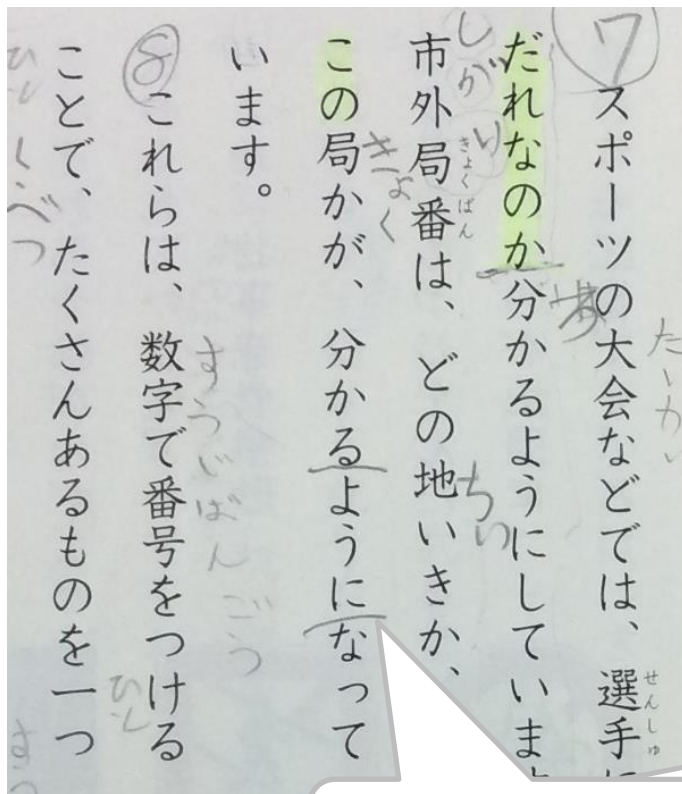 ⑦スポーツの大会などでは、選手に
だれなのか分かるようにしています
市外局番は、どの地いきか、
この局かが、分かるようになって
います。
⑧これらは、数字で番号をつける
ことで、たくさんあるものを一つ
せんしゅ
たいかい
きょくばん
しがい
ちい
きょく
すうじばんごう
ひと
ひと
くべつ